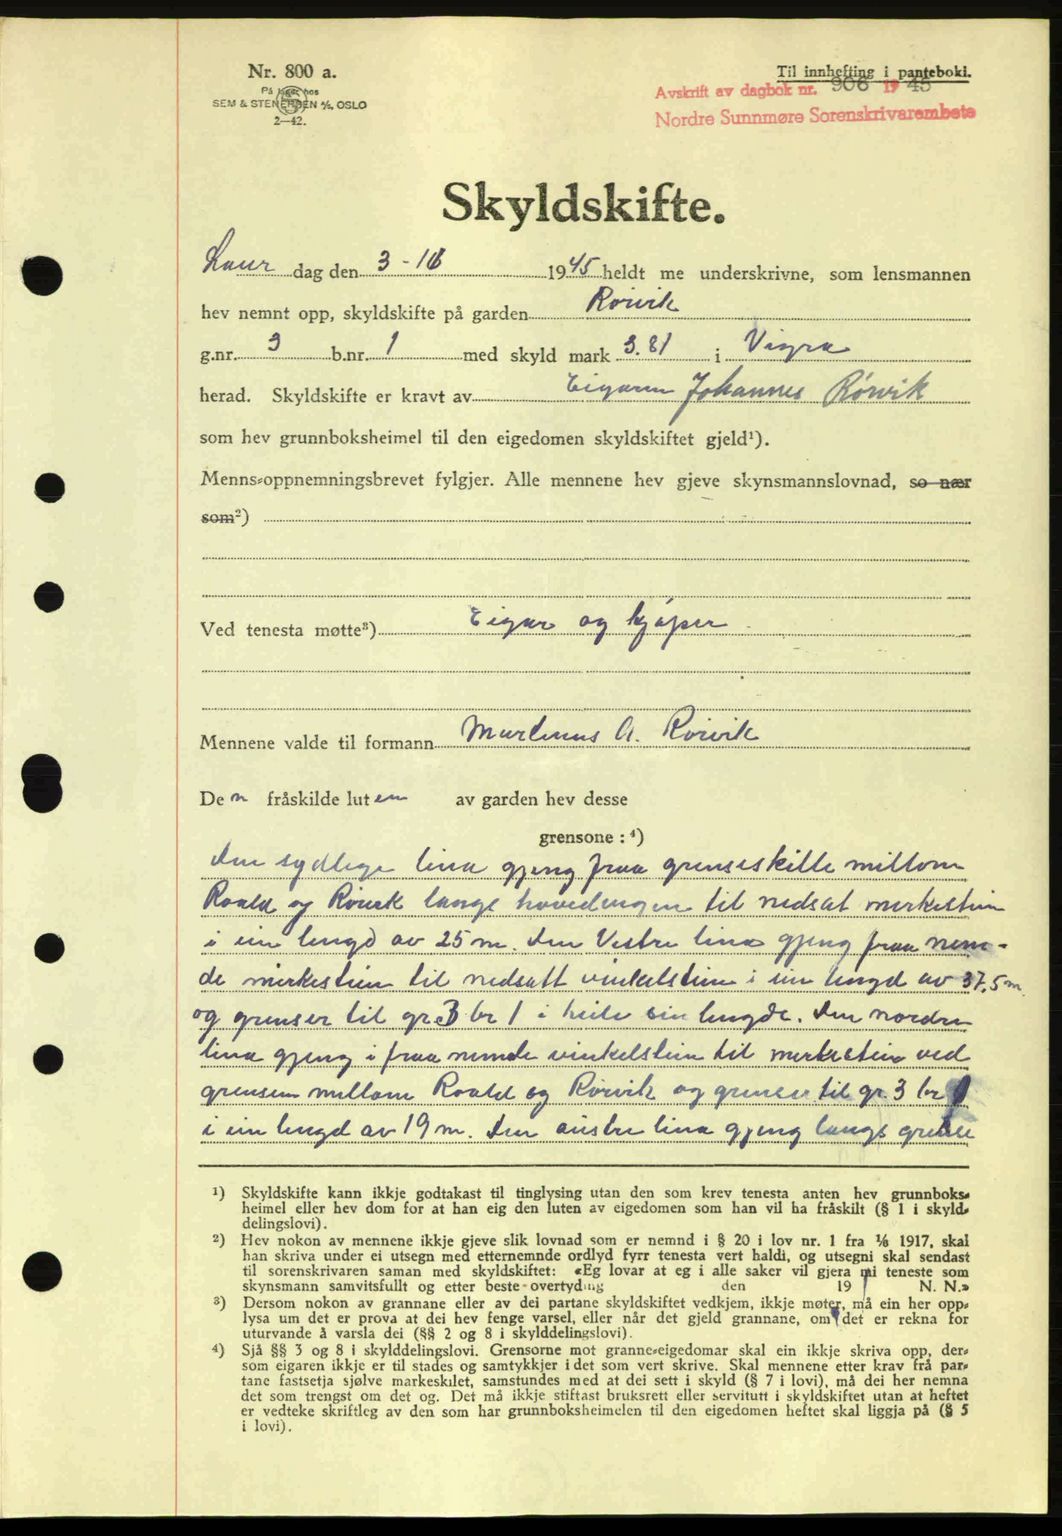 Nr. 800 a.
På lager hos
SEM & STENERSEN A/S. OSLO
2—42.
Til innhefting i panteboki.
Avskrift av dagbok nr. 906 1945
Nordre Sunnmøre Sorenskrivarembete
Skyldskifte.
Laur dag den 3 - 1945 heldt me underskrivne, som lensmannen
hev nemnt opp, skyldskifte på garden Rørvik
g.nr. 3 b.nr. 1 med skyld mark 3.81 i Vigra
herad. Skyldskifte er kravt av Eigaren Johannes Rørvik
som hev grunnboksheimel til den eigedomen skyldskiftet gjeld¹).
Menns-oppnemningsbrevet fylgjer. Alle mennene hev gjeve skynsmannslovnad, so nær
som²)
Ved tenesta møtte³) Eigar og kjøper
Mennene valde til formann Martinus A. Rørvik
Den fråskilde luten av garden hev desse
grensone : ⁴)
Den sydlege lina gjeng fraa grenseskille millom
Roald og Rørvik langs hovedvegen til nedsat merkestein
i ein lengd av 25 m. Den Vestre lina gjeng fraa nem-
de merkestein til nedsatt vinkelstein i ein lengd av 37,5 m.
og grenser til gr. 3 br 1 i heile sin lengde. Den nordre
lina gjeng i fraa nemde vinkelstein til merkestein ved
grensen millom Roald og Rørvik og grenser til gr. 3 br 1
i ein lengd av 19 m. Den austre lina gjeng langs grense
¹) Skyldskifte kann ikkje godtakast til tinglysing utan den som krev tenesta anten hev grunnboks-
heimel eller hev dom for at han eig den luten av eigedomen som han vil ha fråskilt (§ 1 i skyld-
delingslovi).
²) Hev nokon av mennene ikkje gjeve slik lovnad som er nemnd i § 20 i lov nr. 1 fra 1/6 1917, skal
han skriva under ei utsegn med etternemnde ordlyd fyrr tenesta vert haldi, og utsegni skal sendast
til sorenskrivaren saman med skyldskiftet: «Eg lovar at eg i alle saker vil gjera mi teneste som
skynsmann samvitsfullt og etter beste overtyding den 19 N. N.»
³) Dersom nokon av grannane eller av dei partane skyldskiftet vedkjem, ikkje møter, må ein her opp-
lysa um det er prova at dei hev fenge varsel, eller når det gjeld grannane, om det er rekna for
uturvande å varsla dei (§§ 2 og 8 i skylddelingslovi).
⁴) Sjå §§ 3 og 8 i skylddelingslovi. Grensorne mot granne-eigedomar skal ein ikkje skriva opp, der-
som eigaren ikkje er til stades og samtykkjer i det som vert skrive. Skal mennene etter krav frå par-
tane fastsetja sjølve markeskilet, samstundes med at dei sett i skyld (§ 7 i lovi), må dei her nemna
det som trengst om det og. Det må ikkje stiftast bruksrett eller servitutt i skyldskiftet utan at heftet
er vedteke skriftleg av den som har grunnboksheimelen til den eigedomen heftet skal liggja på (§ 5
i lovi).